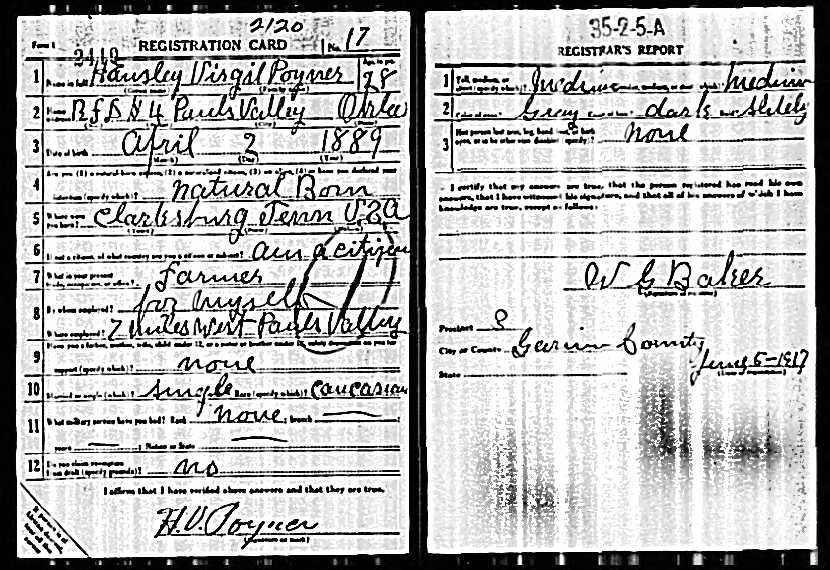 2120
Form 1
2419
REGISTRATION CARD
No. 17
1 Name in full Hausley Virgil Poyner
Age, in yrs. 28
2 Home address R f D # 4 Pauls Valley Okla
3 Date of birth April 2 1889
(Month) (Day) (Year)
4 Are you (1) a natural-born citizen, (2) a naturalized citizen, (3) an alien, (4) or have you declared your
intention (specify which)? natural Born
5 Where were you born? Clarksburg Tenn U.S.A
6 If not a citizen, of what country are you a citizen or subject? am a citizen
7 What is your present trade, occupation, or office? Farmer
8 By whom employed? for myself
Where employed? 2 miles West Pauls Valley
9 Have you a father, mother, wife, child under 12, or a sister or brother under 12, solely dependent on you for
support (specify which)? none
10 Married or single (which)? single Race (specify which)? Caucasian
11 What military service have you had? Rank none branch
years Nation or State
12 Do you claim exemption from draft (specify grounds)? no
I affirm that I have verified above answers and that they are true.
H.V. Poyner
(Signature or mark)
35-2-5-A
REGISTRAR'S REPORT
1 Tall, medium, or short (specify which)? Medium medium
2 Color of eyes? Gray Color of hair? dark
3 Has person lost arm, leg, hand, foot, or both
eyes, or is he otherwise disabled (specify)? none
I certify that my answers are true, that the person registered has read his own
answers, that I have witnessed his signature, and that all of his answers of which I have
knowledge are true, except as follows:
W G Baker
(Signature of registrar)
Precinct 3
City or County Garvin County
State
June 5-1917
(Date of registration)